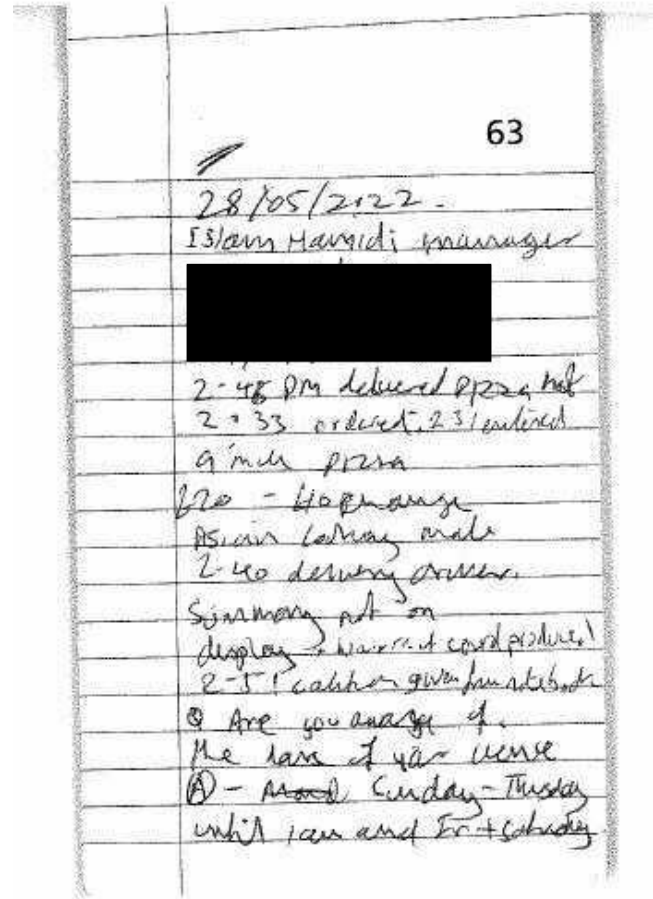 63
28/05/2022.
Islam Hamidi manager
2-48 PM delivered pizza hot
2-33 ordered. 231 entered
9 inch pizza
£20 - 40p change
Asian looking male
2-40 delivery driver.
Summary not on
display - warrant card produced
2-51 caution given from notebook
Q Are you aware of.
the hours of your license
A - Sunday - Thursday
until 1am and Fri + Saturday